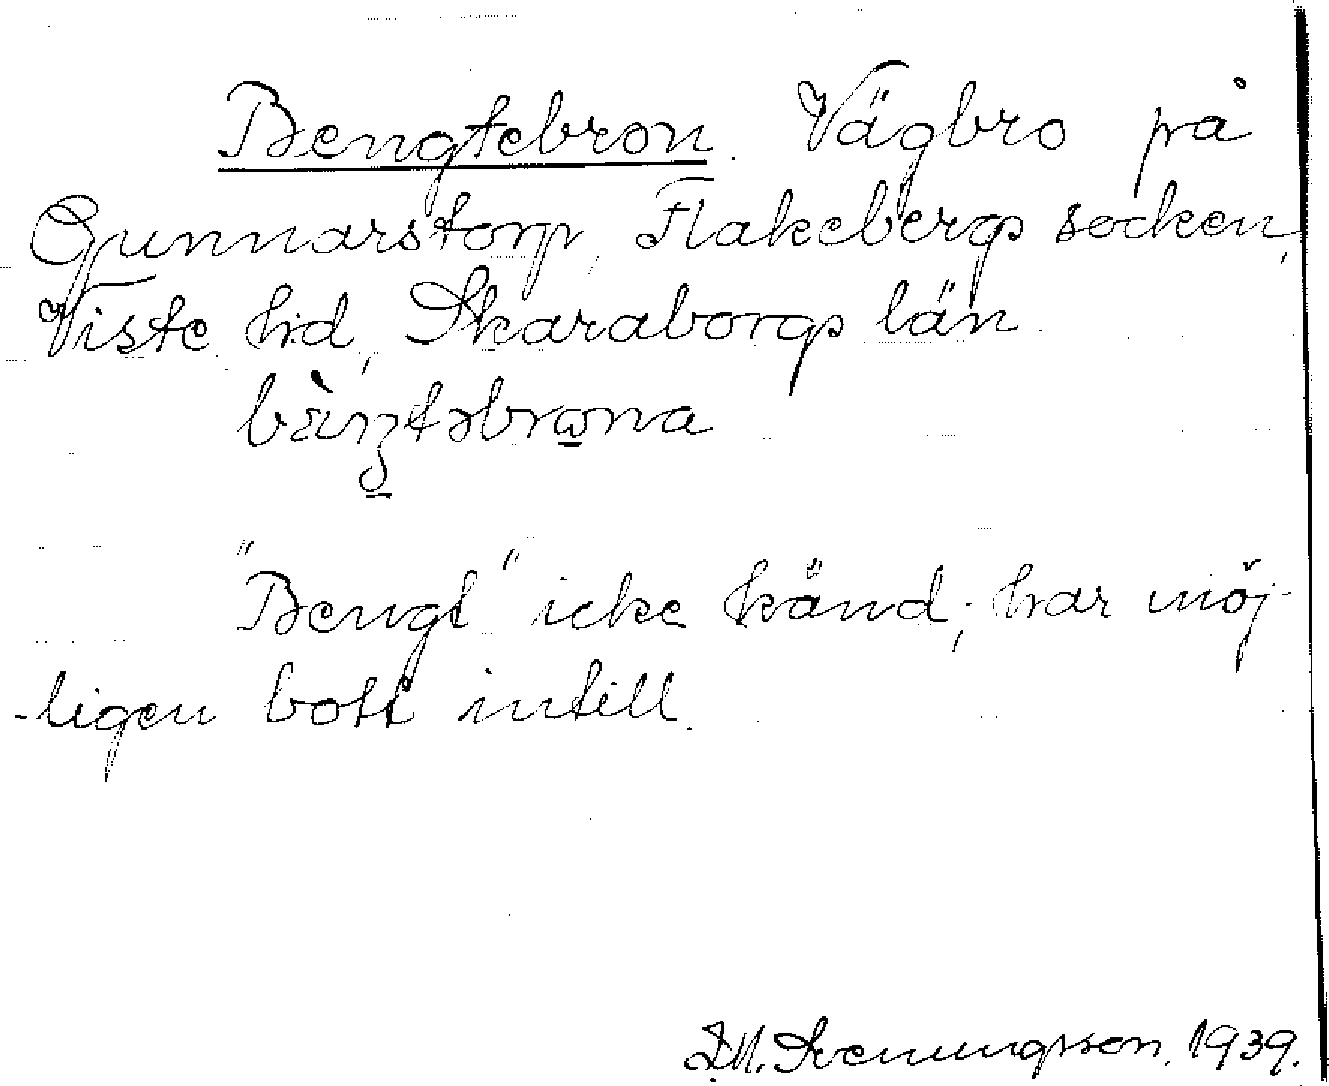 Bengtebron. Vägbro på
Gunnarstorp, Flakebergs socken,
Viste hd, Skaraborgs län.
"Bengt" icke känd; har möj-
-ligen bott intill.
Svenungsson. 1939.